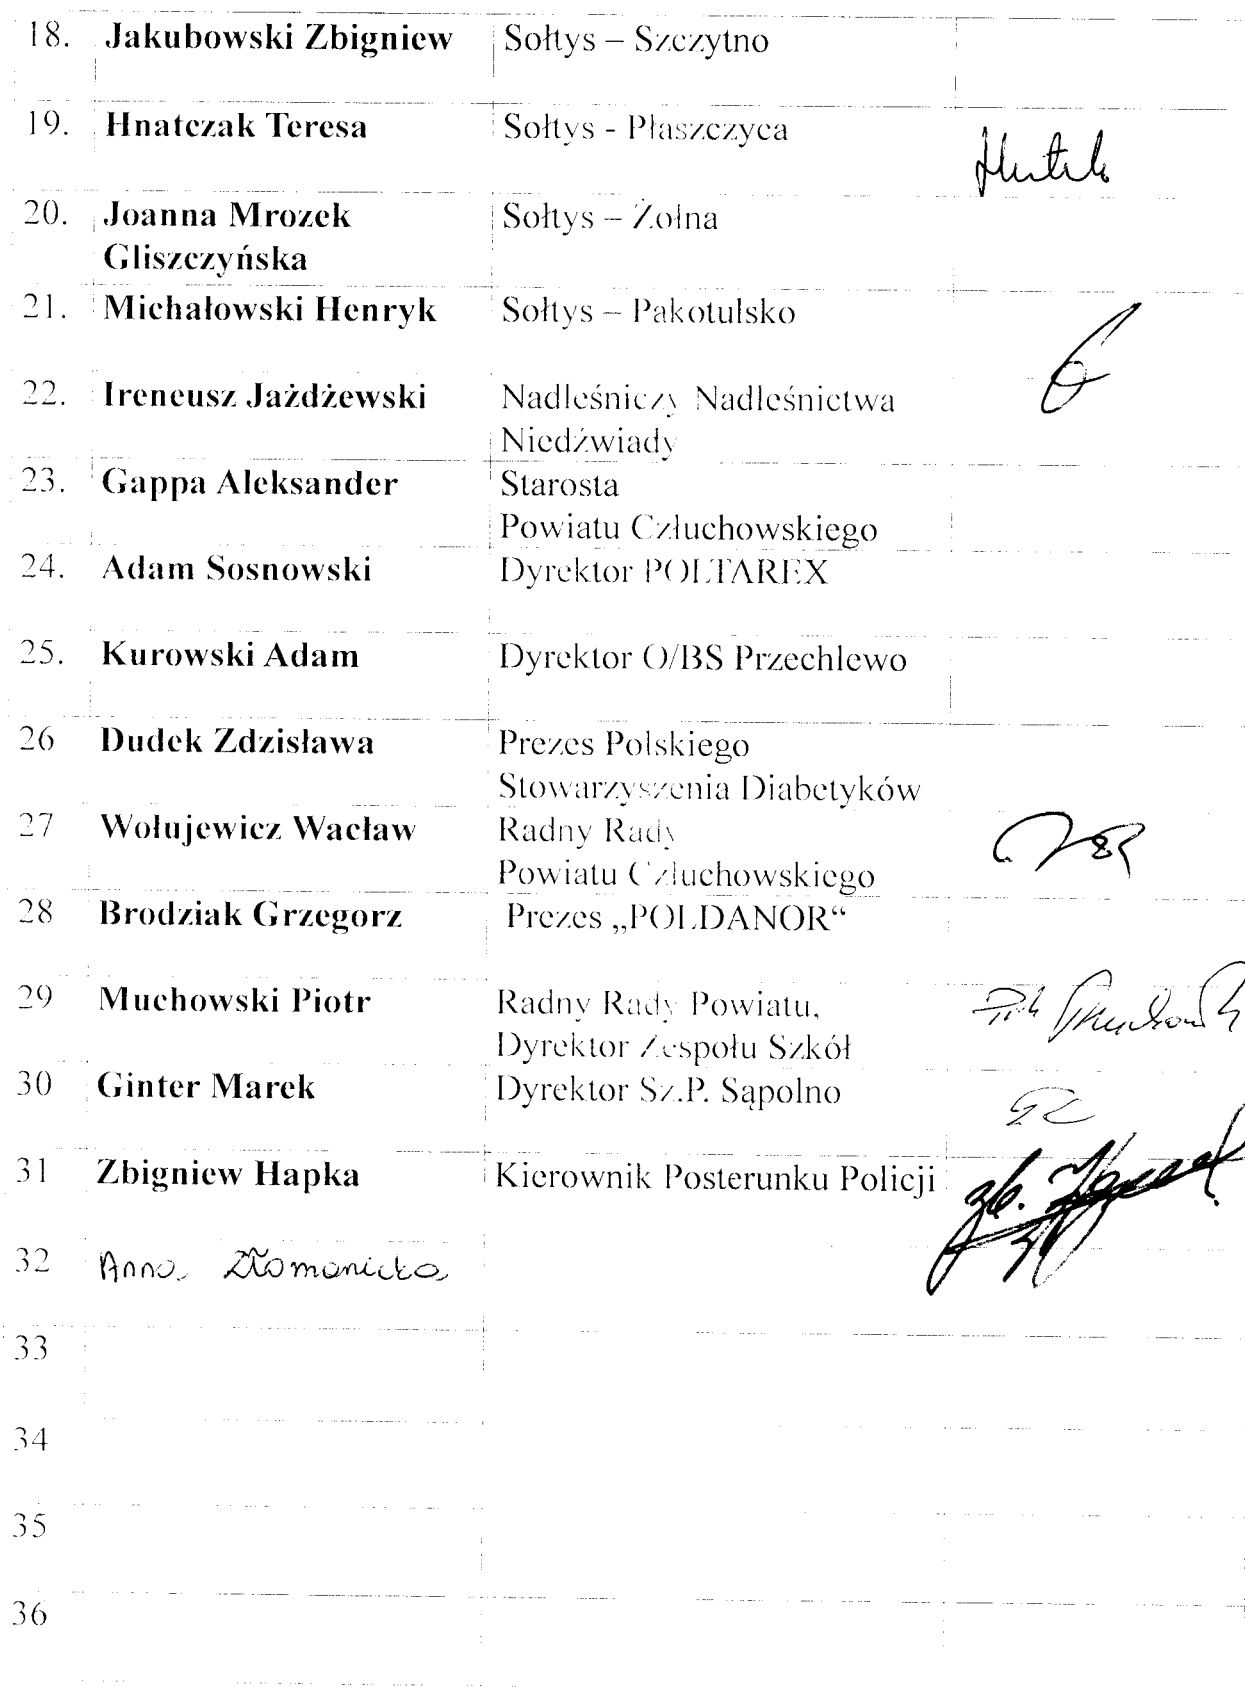 18. Jakubowski Zbigniew Sołtys – Szczytno
19. Hnatczak Teresa Sołtys - Płaszczyca
20. Joanna Mrozek Sołtys – Żołna
Gliszczyńska
21. Michałowski Henryk Sołtys – Pakotulsko
22. Ireneusz Jażdżewski Nadleśniczy Nadleśnictwa
Niedźwiady
23. Gappa Aleksander Starosta
Powiatu Człuchowskiego
24. Adam Sosnowski Dyrektor POLTAREX
25. Kurowski Adam Dyrektor O/BS Przechlewo
26 Dudek Zdzisława Prezes Polskiego
Stowarzyszenia Diabetyków
27 Wołujewicz Wacław Radny Rady
Powiatu Człuchowskiego
28 Brodziak Grzegorz Prezes „POLDANOR“
29 Muchowski Piotr Radny Rady Powiatu,
Dyrektor Zespołu Szkół
30 Ginter Marek Dyrektor Sz.P. Sąpolno
31 Zbigniew Hapka Kierownik Posterunku Policji
32 Anna
33
34
35
36